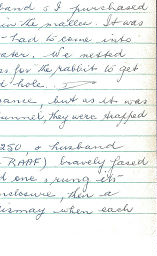 band & I purchased
in the mallee. It was
had to come into
ater. We netted
s for the rabbit to get
d hole.
ance, but as it was
unnel, they were trapped
250 & husband
RAAF) bravely faced
d one & rung its
nclosure, then a
ismay when each